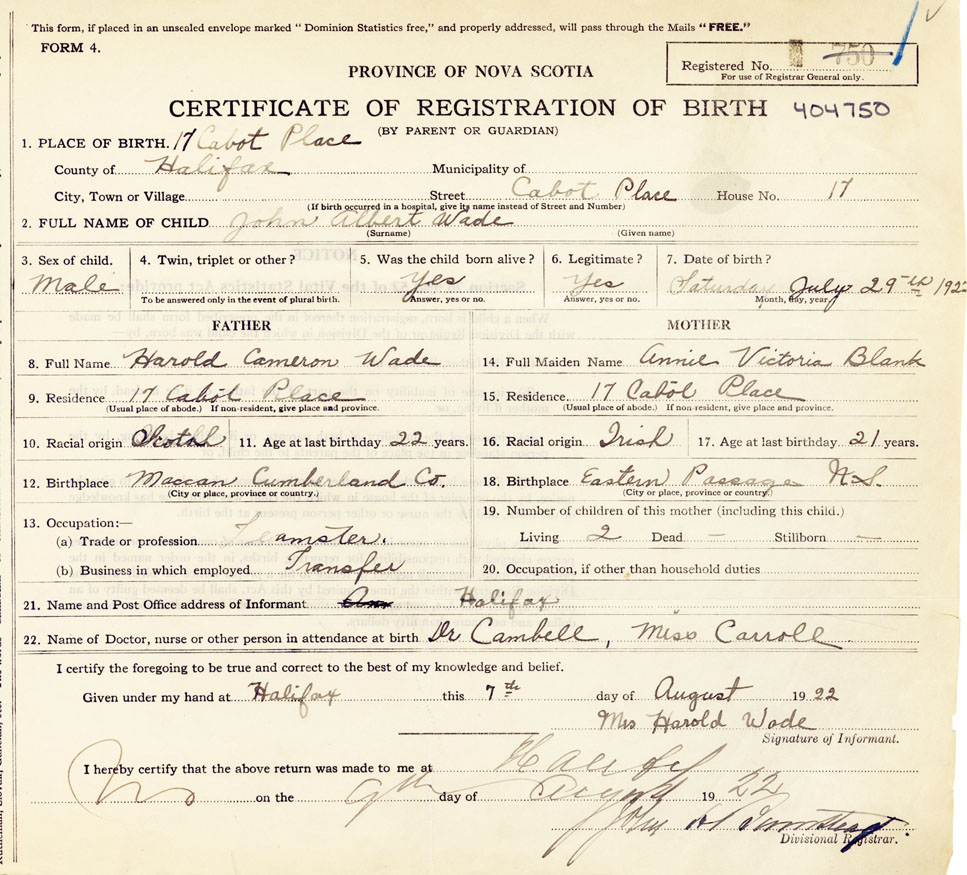 This form, if placed in an unsealed envelope marked "Dominion Statistics free," and properly addressed, will pass through the Mails "FREE."
FORM 4.
Registered No. 750
For use of Registrar General only.
PROVINCE OF NOVA SCOTIA
CERTIFICATE OF REGISTRATION OF BIRTH 404750
(BY PARENT OR GUARDIAN)
1. PLACE OF BIRTH. 17 Cabot Place
County of Halifax Municipality of
City, Town or Village Street Cabot Place House No. 17
(If birth occurred in a hospital, give its name instead of Street and Number)
2. FULL NAME OF CHILD John Albert Wade
(Surname) (Given name)
3. Sex of child. 4. Twin, triplet or other? 5. Was the child born alive? 6. Legitimate? 7. Date of birth?
Male Yes Yes Saturday July 29th 192
To be answered only in the event of plural birth. Answer, yes or no. Answer, yes or no. Month, day, year
FATHER MOTHER
8. Full Name Harold Cameron Wade 14. Full Maiden Name Annie Victoria Blank
9. Residence 17 Cabot Place 15. Residence. 17 Cabot Place
(Usual place of abode.) If non-resident, give place and province. (Usual place of abode.) If non-resident, give place and province.
10. Racial origin Scotch 11. Age at last birthday 22 years. 16. Racial origin Irish 17. Age at last birthday 21 years.
12. Birthplace Maccan Cumberland Co. 18. Birthplace Eastern Passage N.S.
(City or place, province or country.) (City or place, province or country.)
13. Occupation:— 19. Number of children of this mother (including this child.)
(a) Trade or profession Teamster. Living 2 Dead — Stillborn —
(b) Business in which employed Transfer 20. Occupation, if other than household duties
21. Name and Post Office address of Informant Halifax
22. Name of Doctor, nurse or other person in attendance at birth Dr Cambell, Miss Carroll
I certify the foregoing to be true and correct to the best of my knowledge and belief.
Given under my hand at Halifax this 7th day of August 1922
Mrs Harold Wade
Signature of Informant.
I hereby certify that the above return was made to me at Halifax
on the 9th day of August 1922
John
Divisional Registrar.